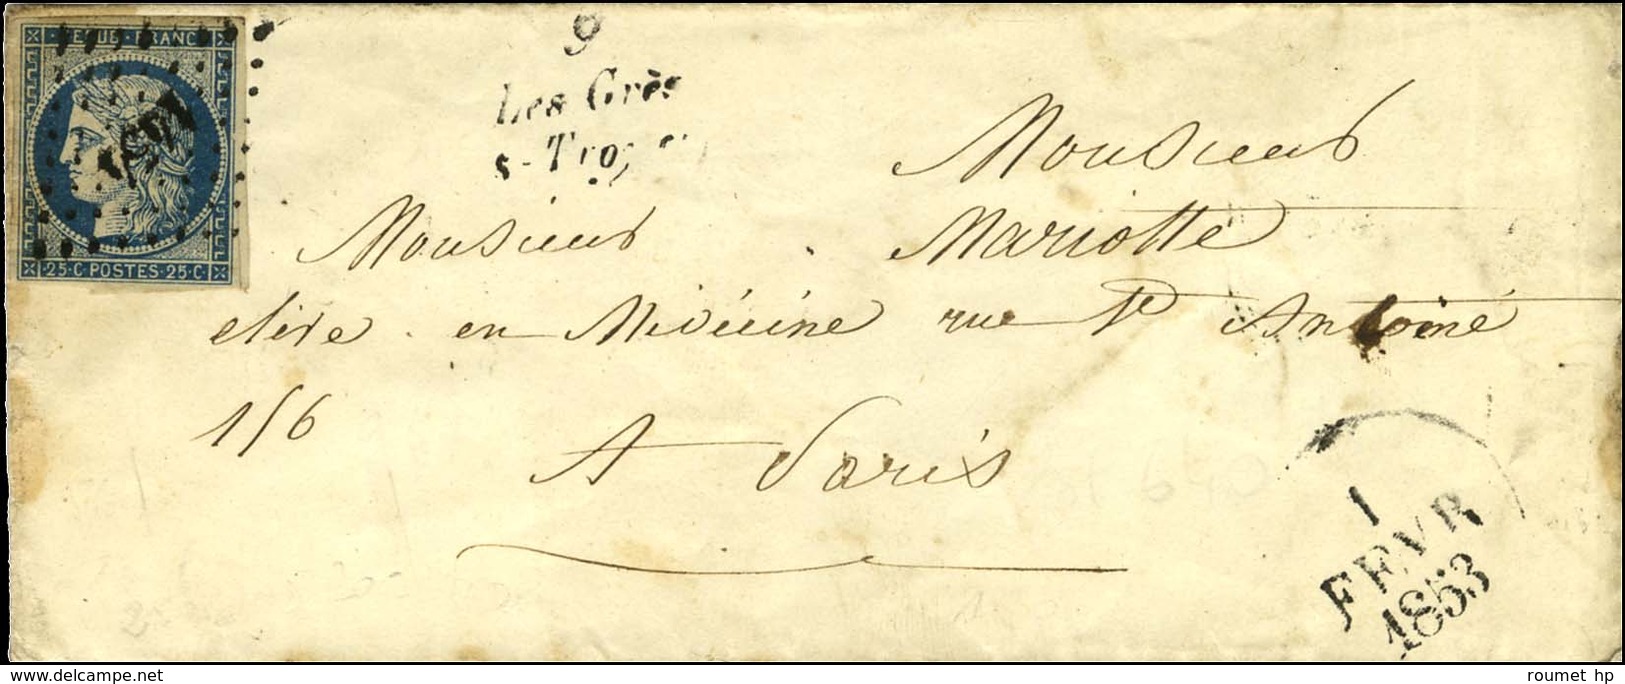 REPUB. FRANC
25·C POSTES·25·C
9
Les Grès
s-Troyes
Monsieur
Monsieur Mariotte
elève en Médecine rue St Antoine
156
A Paris
1
FEVR
1853
roumet hp